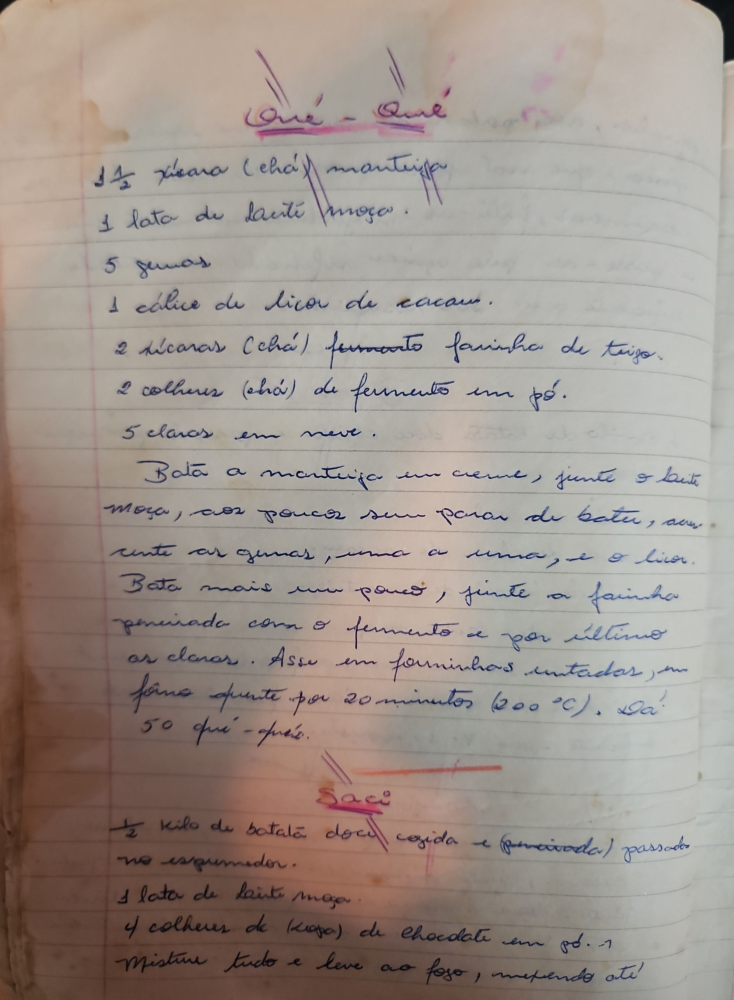 Qué - Qué
1 1/2 xícara (chá) manteiga
1 lata de Leite moça.
5 gemas
1 cálice de licor de cacau.
2 xícaras (chá) fermento farinha de trigo.
2 colheres (chá) de fermento em pó.
5 claras em neve.
Bata a manteiga em creme, junte o leite
moça, aos poucos sem parar de bater, acres
cente as gemas, uma a uma, e o licor.
Bata mais um pouco, junte a farinha
peneirada com o fermento e por último
as claras. Asse em forminhas untadas, em
fôrno quente por 20 minutos (200 °C). Dá
50 qué-qués.
Saci
1/2 kilo de batata doce cozida e (peneirada) passada
no espremedor.
1 lata de Leite moça.
4 colheres de (sopa) de chocolate em pó.
Misture tudo e leve ao fogo, mexendo até